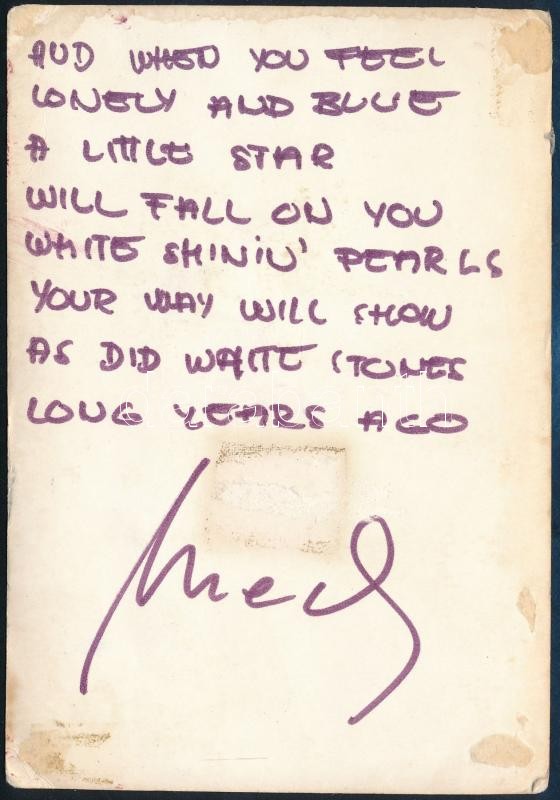 AND WHEN YOU FEEL
LONELY AND BLUE
A LITTLE STAR
WILL FALL ON YOU
WHITE SHININ' PEARLS
YOUR WAY WILL SHOW
AS DID WHITE STONES
LONG YEARS AGO